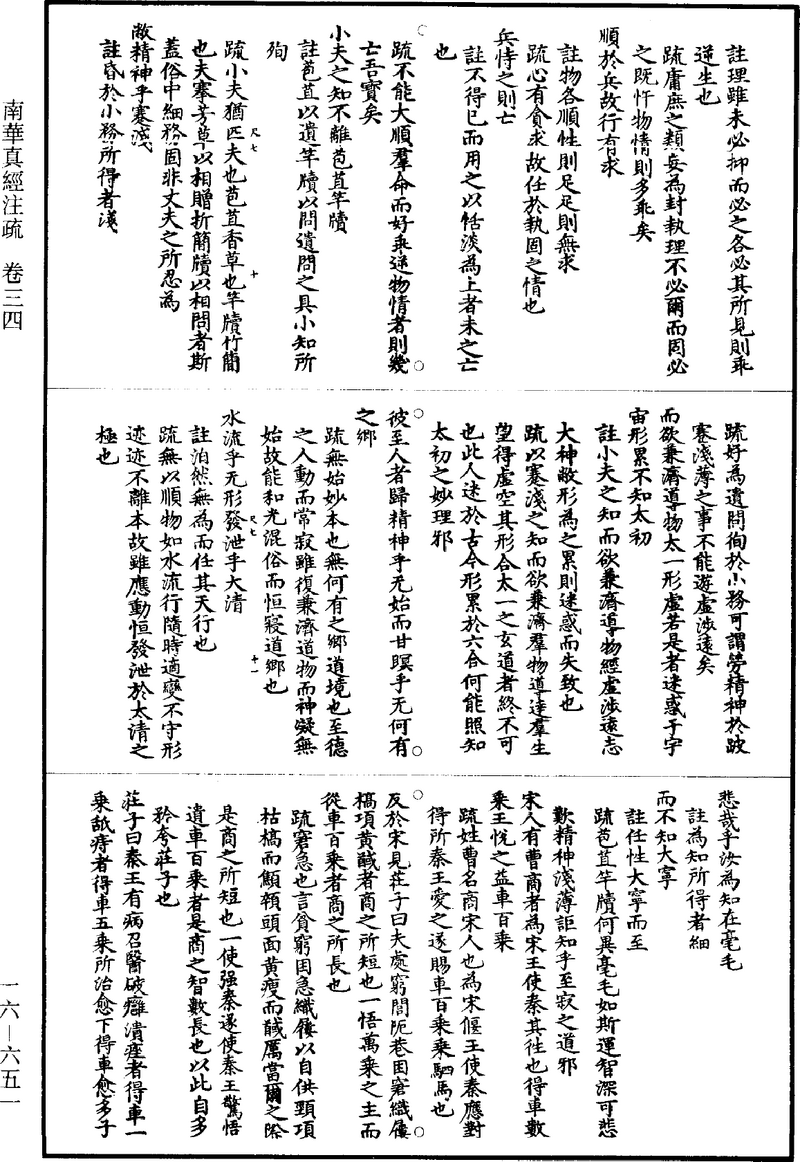 註理雖未必抑而必之各必其所見則乖
逆生也
疏庸庶之類妄為封執理不必爾而固必
之既忤物情則多乖矣
順於兵故行有求
註物各順性則足足則無求
疏心有貪求故任於執固之情也
兵恃之則亡
註不得已而用之以恬淡為上者未之亡
也
疏不能大順羣命而好乖逆物情者則幾
亡吾寳矣
小夫之知不離苞苴竿牘
註苞苴以遺竿牘以問遺問之具小知所
殉
疏小夫猶匹夫也苞苴香草也竿牘竹簡
也夫搴芳草以相贈折簡牘以相問者斯
蓋俗中細務固非丈夫之所忍為
敝精神乎蹇淺
註昏於小務所得者淺
疏好為遺問徇於小務可謂勞精神於跛
蹇淺薄之事不能遊虛涉遠矣
而欲兼濟導物太一形虛若是者迷惑于宇
宙形累不知太初
註小夫之知而欲兼濟導物經虛涉遠志
大神敝形為之累則迷惑而失致也
疏以蹇淺之知而欲兼濟羣物導達羣生
望得虛空其形合太一之玄道者終不可
也此人迷於古今形累於六合何能照知
太初之妙理邪
彼至人者歸精神乎无始而甘暝乎无何有
之鄉
疏無始妙本也無何有之鄉道境也至德
之人動而常寂雖復兼濟道物而神凝無
始故能和光混俗而恒寢道鄉也
水流乎无形發泄乎大清
註泊然無為而任其天行也
疏無以順物如水流行隨時適變不守形
迹迹不離本故雖應動恒發泄於太清之
極也
悲哉乎汝為知在毫毛
註為知所得者細
而不知大寧
註任性大寧而至
疏苞苴竿牘何異毫毛如斯運智深可悲
歎精神淺薄詎知乎至寂之道邪
宋人有曹商者為宋王使秦其往也得車數
乘王悅之益車百乘
疏姓曹名商宋人也為宋偃王使秦應對
得所秦王愛之遂賜車百乘乘駟馬也
反於宋見莊子曰夫處窮閭阨巷困窘織屨
槁項黃馘者商之所短也一悟萬乘之主而
從車百乘者商之所長也
疏窘急也言貧窮困急織屨以自供頸項
枯槁而顦顇頭面黃瘦而馘厲當爾之際
是商之所短也一使强秦遂使秦王驚悟
遺車百乘者是商之智數長也以此自多
矜夸莊子也
莊子曰秦王有病召醫破癰潰痤者得車一
乘舐痔者得車五乘所治愈下得車愈多子
南華真經注疏 卷三四
一六—六五一
尺七
十
尺七
十一